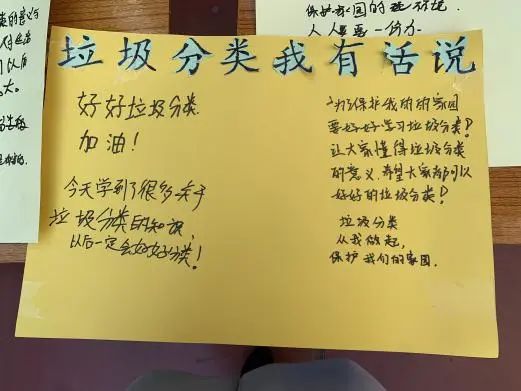 保护家园的砖砌
人人尽一份力
垃圾分类我有话说
好好垃圾分类
加油！
今天学到了很多关于
垃圾分类的知识，
以后一定会好好分类！
为了保护我的的家园
要好好学习垃圾分类？
让大家懂得垃圾分类
的意义，希望大家都可以
好好的垃圾分类？
垃圾分类
从我做起，
保护我们的家园.